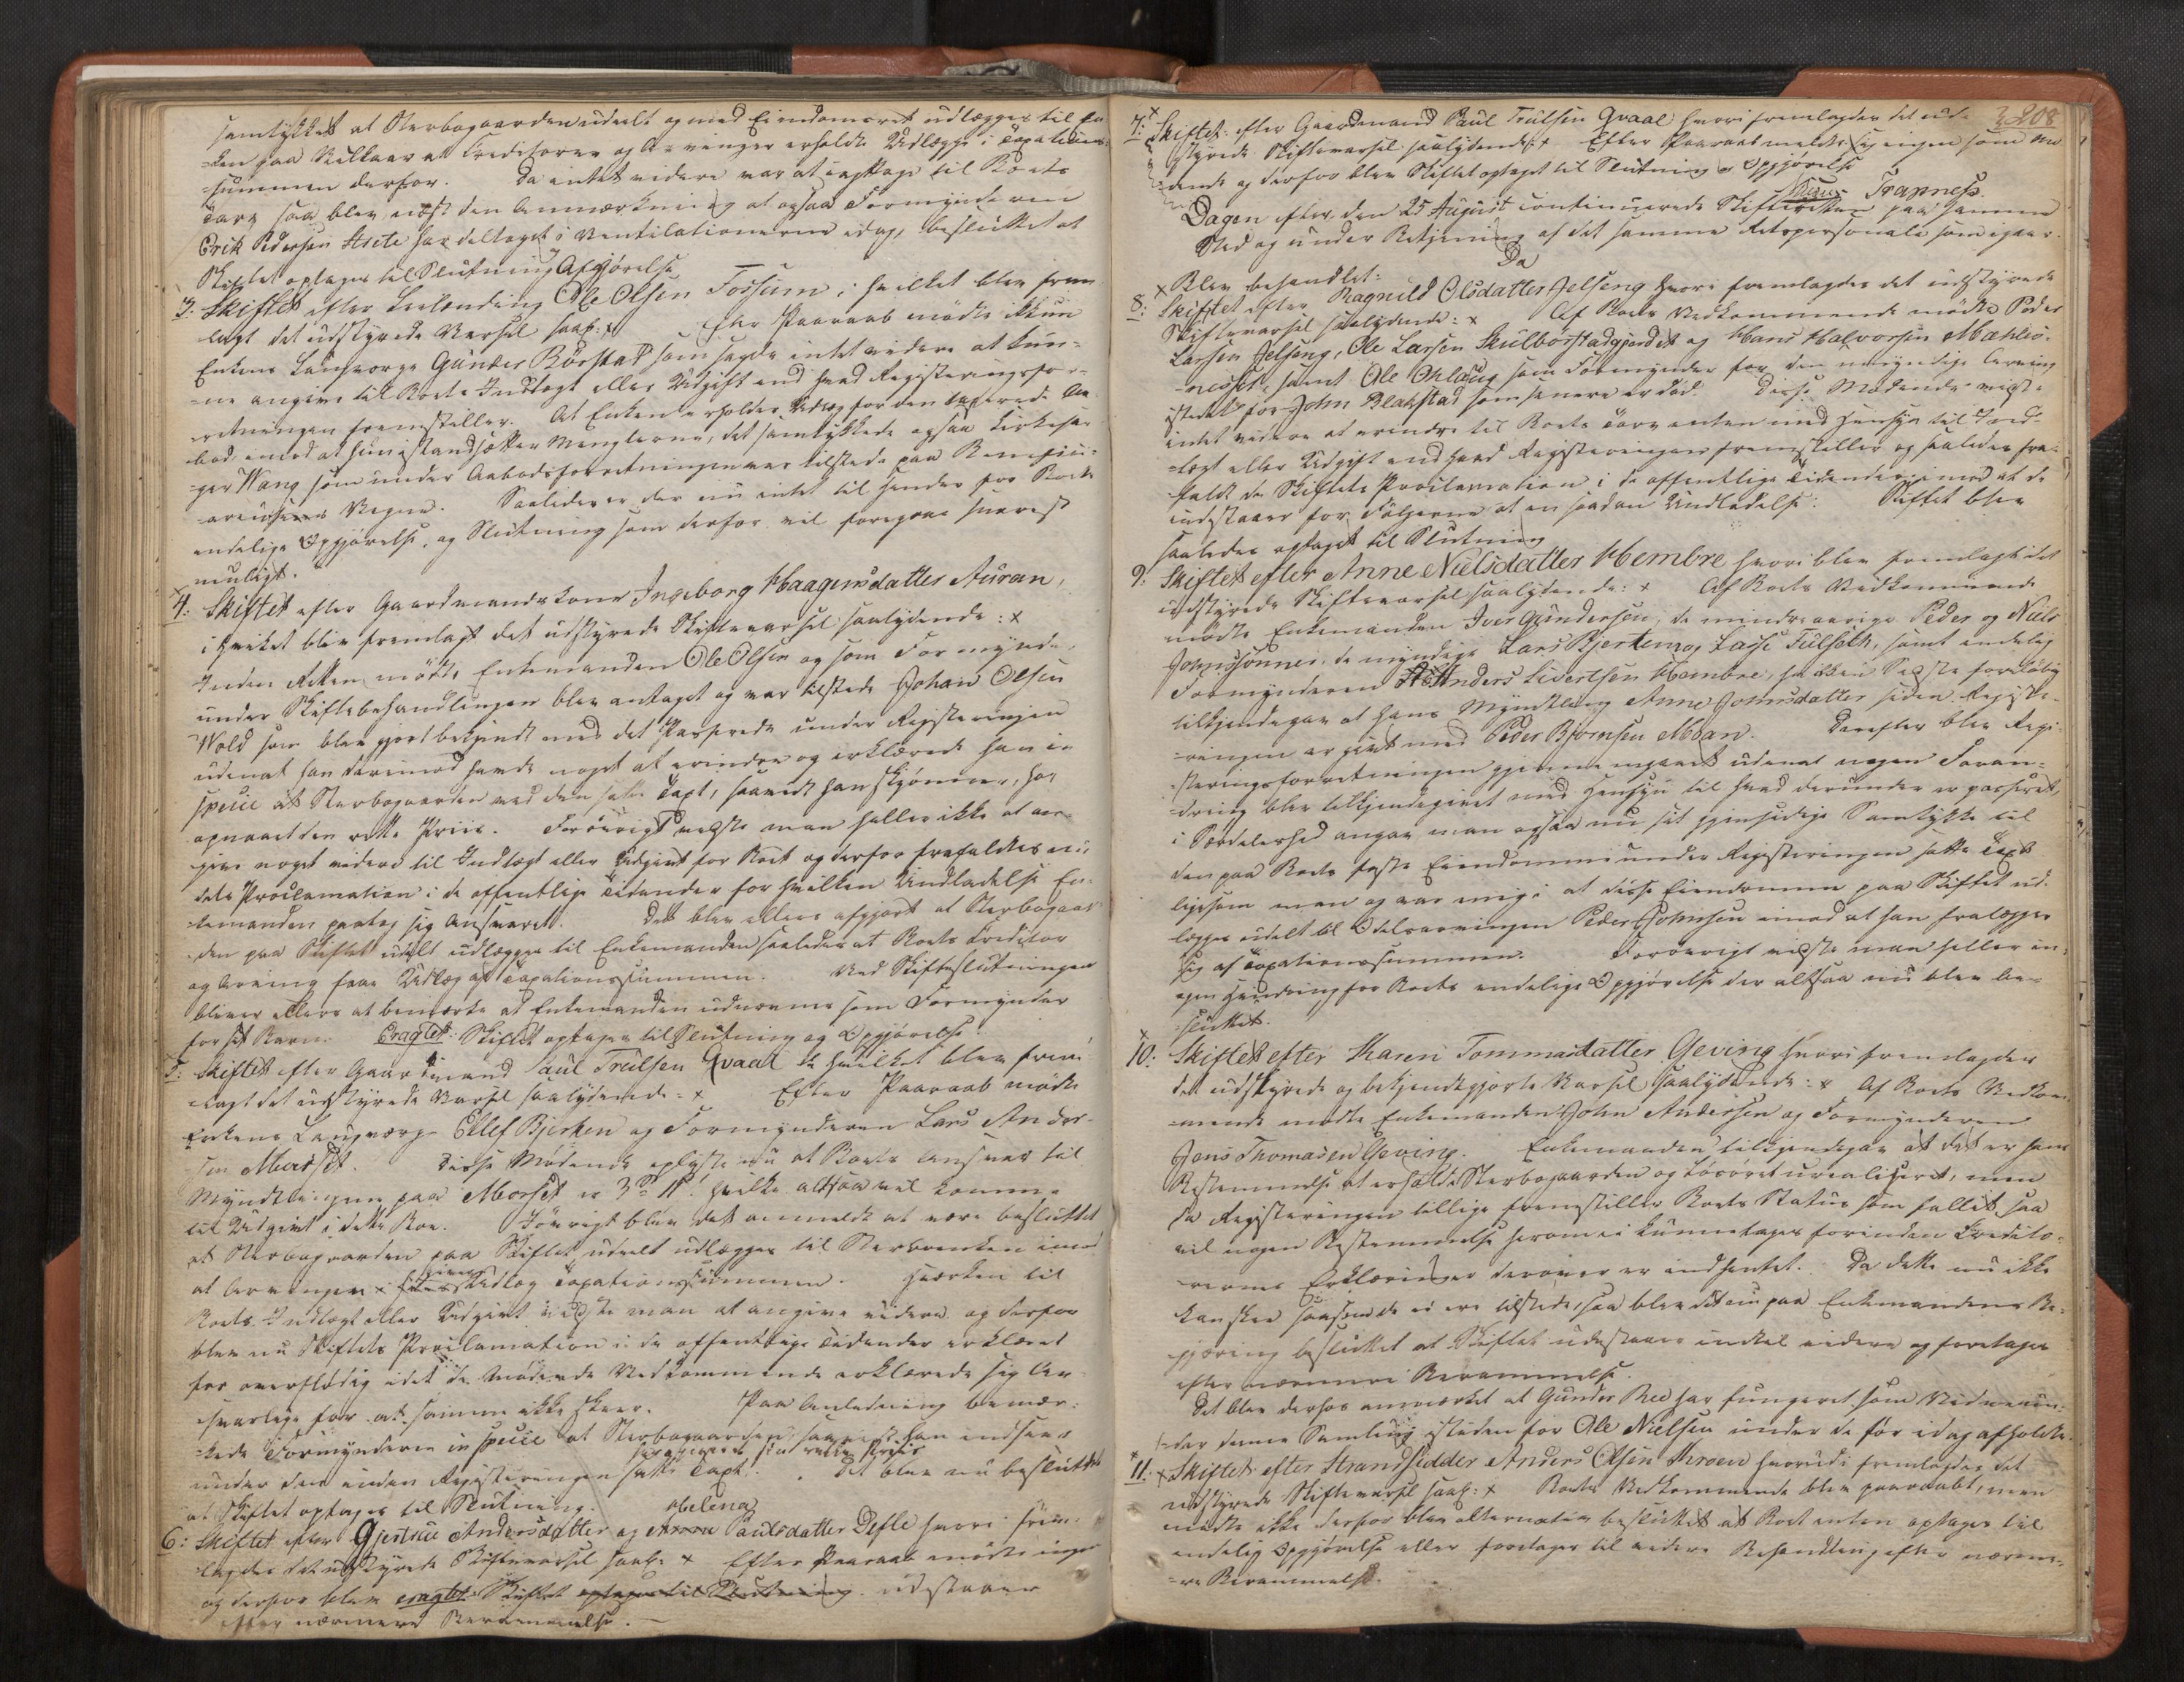 samtykket at Sterbogaarden udeelt og med Eiendomsret udlægges til En-
-ken paa Vilkaar at Creditorer og Arvinger erholde Udlægge i Taxations-
summen derfor. Da intet videre var at iagttage til Boets
Tarv saa blev næst den Anmærkning at ogsaa Formynderen
Erik Pedersen Stete har deltaget i Ventilationerne idag, besluttet at
Skiftet optages til Slutning og Afgjørelse
3: Skiftet efter Leilænding Ole Olsen Fossum, i hvilket blev frem-
lagt det udstyrede Varsel saal: x Efter Paaraab mødte ikkun
Enkens Laugværge Gunder Børstad som sagde intet videre at kun-
-ne angive til Boets Indtægt eller Udgift end hvad Registreringsfor-
retningen fremstiller. At Enken erholder Udlæg for den taxerede Aa-
-bod imod at hun istandsætter Manglerne, det samtykkede ogsaa Kirkesan-
-ger Wang som under Aabodsforretningen var tilstede paa Benefici-
-ariussens Vegne. Saaledes er der nu intet til Hinder for Boets
endelige Opgjørelse, og Slutning som derfor vil foregaae snarest
muligt.
x 4: Skiftet efter Gaardmandskone Ingeborg Haagensdatter Auran,
i hvilket blev fremlagt det udstyrede Skiftevarsel saalydende: x
Inden Retten mødte Enkemanden Ole Olsen og som Formynder
under Skiftebehandlingen blev antaget og var tilstede Johan Olsen
Wold som blev gjort bekjendt med det Passerede under Registreringen
udenat han derimod havde noget at erindre og erklærede han in
specie at Sterbogaarden ved den satte Taxt, saavidt han skjønner, har
opnaaet den rette Priis. Forøvrigt vidste man heller ikke at an-
give noget videre til Indtægt eller Udgivt for Boet og derfor frafaldtes en-
dels Proclamation i de offentlige Tidender for hvilken Undladelse En-
kemanden paatog sig Ansvaret. Det blev ellers afgjort at Sterbogaar-
den paa Skiftet udeelt udlægges til Enkemanden saaledes at Boets Creditor
og Arving faae Udlæg af Taxationssummen. Ved Skifteslutningen
bliver ellers at bemærke at Enkemanden udnævnes som Formynder
for sit Barn. Eragtet: Skiftet optages til Slutning og Opgjørelse
5: Skiftet efter Gaardmand Paul Trulsen Qvaal i hvilket blev frem-
lagt det udstyrede Varsel saalydende: x Efter Paaraab mødte
Enkens Laugværge Ellef Bjerken og Formynderen Lars Ander-
sen Morset. Disse Mødende oplyste nu at Boets Ansvar til
Myndtlingene paa Morset er hvilke altsaa vil komme
til Udgivt i dette Boe. Iøvrigt blev det anmeldt at være besluttet
at Sterbogaarden paa Skiftet udeelt udlægges til Sterboenken imod
at Arvingerne gives Udlæg Taxationssummen. Hverken til
Boets Indtægt eller Udgivt vidste man at angive videre og derfor
blev nu Skiftets Proclamation i de offentlige Tidender erklæret
for overflødig idet de mødende Vedkommende erklærede sig An-
svarlige for at samme ikke skeer. Paa Anledning bemær-
kede Formynderen in specie at Sterbogaarden, saavidt han indseer
under den inden Registreringen satte Taxt. Det blev nu besluttet
at Skiftet optages til Slutning.
6: Skiftet efter Gjertrue Andersdatter og Helena Paulsdatter Defle hvori frem-
lagdes det udstyrede Skiftevarsel saal: x Efter Paaraab mødte ingen
og derfor blev eragtet: Skiftet optages til Slutning. udstaaer
efter nærmere Berammelse.
208
7: x Skiftet efter Gaardmand Paul Trulsen Qvaal hvori fremlagdes det ud-
styrede Skiftevarsel saalydende: x Efter Paaraab meldte sig ingen som Mø-
dende og derfor blev Skiftet optaget til Slutning og Opgjørelse
Trapness.
Dagen efter den 25 August continuerede Skifteretten paa samme
Sted og under Betjening af det samme Retspersonale som igaar.
Da
x Blev behandlet:
8: Skiftet efter Ragnild Olsdatter Jelseng hvori fremlagdes det udstyrede
Skiftevarsel saalydende: x Af Boets Vedkommende mødte Peder
Larsen Jelseng, Ole Larsen Skulbørstadgjerdet og Hans Halvorsen Mæhles-
nesset, samt Ole Oklaug som Formynder for den umyndige Arving
istedet for John Blakstad som senere er død. Disse Mødende vidste
intet videre at erindre til Boets Tarv enten med Hensyn til Ind-
-tægt eller Udgift end hvad Registreringen fremstiller og saaledes fra-
faldt de Skiftets Proclamation i de offentlige Tidender imod at de
indestaaer for Følgerne af en saadan Undladelse: Skiftet blev
saaledes optaget til Slutning
9: Skiftet efter Anne Nielsdatter Hembre hvori blev fremlagt det
udstyrede Skiftevarsel saalydende: x Af Boets Vedkommende
mødte Enkemanden Iver Gundersen, de mindreaarige Peder og Niels
Johnssønner, de myndige Lars Bjerken og Lars Fulseth, samt endelig
Formynderen Anders Sivertsen Hembre, hvilken Sidste foreløbig
tilkjendegav at hans Myndtling Anne Johnsdatter siden Registre-
-ringen er givt med Peder Bjørnsen Moan. Derefter blev Regi-
-streringsforretningen gjennemgaaet udenat nogen Foran-
dring blev tilkjendegivet med Hensyn til hvad derunder er passeret,
i Særdeleshed angav man ogsaa nu sit gjensidige Samtykke til
den paa Boets faste Eiendomme under Registreringen satte Taxt
ligesom man og var enig i at disse Eiendomme paa Skiftet ud-
lægges udelt til Odelsarvingen Peder Johnsen imod at han fralægger
sig af Taxationssummen. Forøvrigt vidste man heller in-
gen Hindring for Boets endelige Opgjørelse der altsaa nu blev be-
sluttet.
x 10: Skiftet efter Karen Tommasdatter Geving hvori fremlagdes
det udstyrede og bekjendtgjorte Varsel saalydende: x Af Boets Vedkom-
mende mødte Enkemanden John Andersen og Formynderen
Jens Thomasen Geving. Enkemanden tilkjendegav at det er hans
Bestemmelse at erholde Sterbogaarden og Løsøret urealiseret, men
da Registreringen tillige fremstiller Boets Status som fallit, saa
vil nogen Bestemmelse herom ei kunne tages forinden Credito-
rernes Erklæringer derover er indhentet. Da dette nu ikke
kan skee saasom de ei ere tilstede, saa blev det nu paa Enkemandens Be-
gjæring besluttet at Skiftet udestaaer indtil videre og foretages
efter nærmere Berammelse.
Det blev derhos anmærket at Gunder Ree har fungeret som Vidne un-
der denne Samling isteden for Ole Nielsen under de før idag afholdte.
x 11: x Skiftet efter Strandsidder Anders Olsen Kroen hvorudi fremlagdes det
udstyrede Skiftevarsel saal: x Boets Vedkommende blev paaraabt, men
mødte ikke derfor blev alternativ besluttet at Boet enten optages til
endelig Opgjørelse eller foretages til videre Behandling efter nærme-
-re Berammelse.